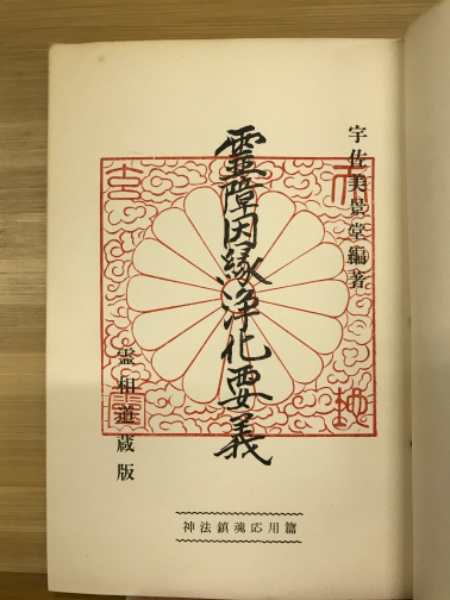 宇佐美景堂編著
靈障因縁浄化要義
霊相道蔵版
神法鎮魂応用篇